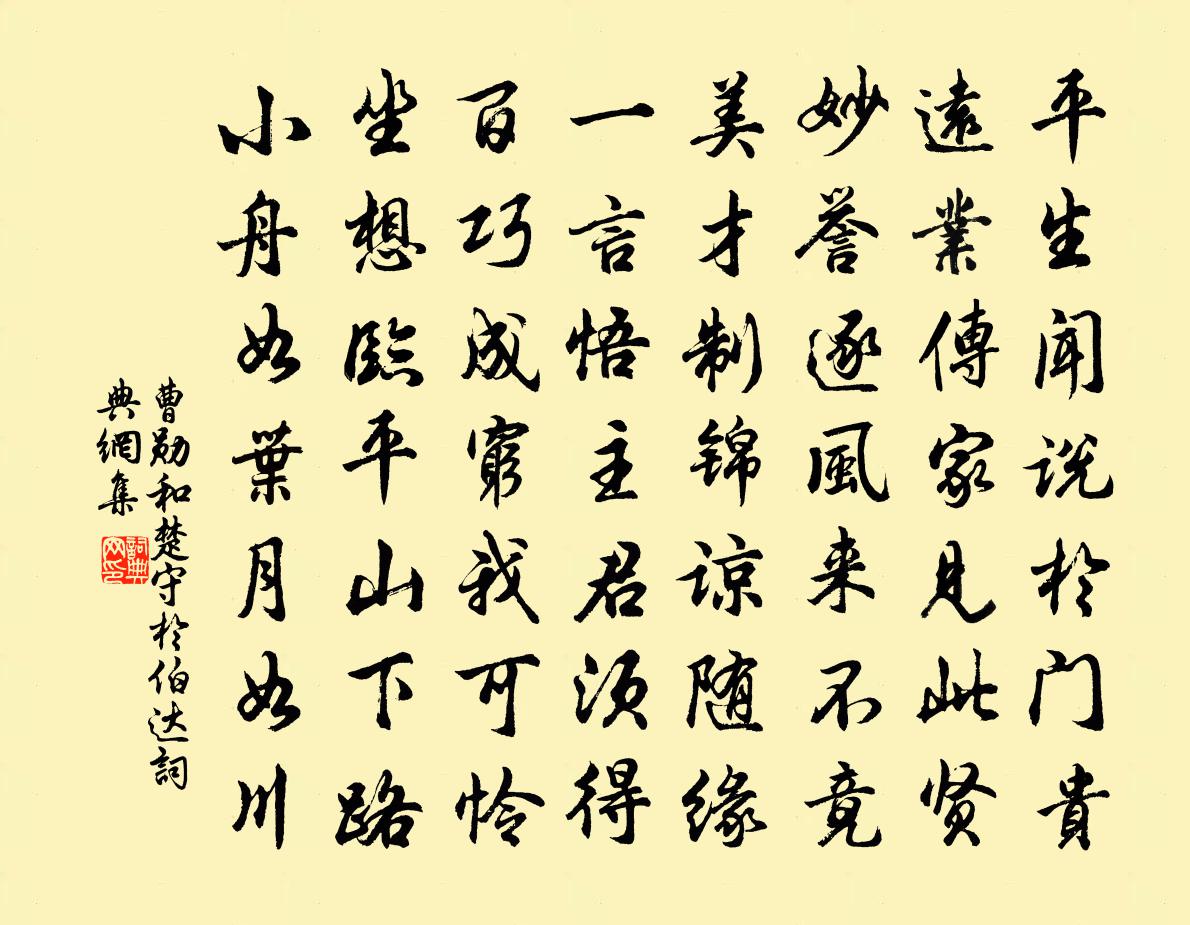 平生闻说於门貴
遠業傳家見此贤
妙誉逐風来不竟
美才制锦谅随缘
一言悟主君须得
百巧成窮我可怜
坐想臨平山下路
小舟如葉月如川
曹勋和楚守於伯达詞
典網集
詞典网印